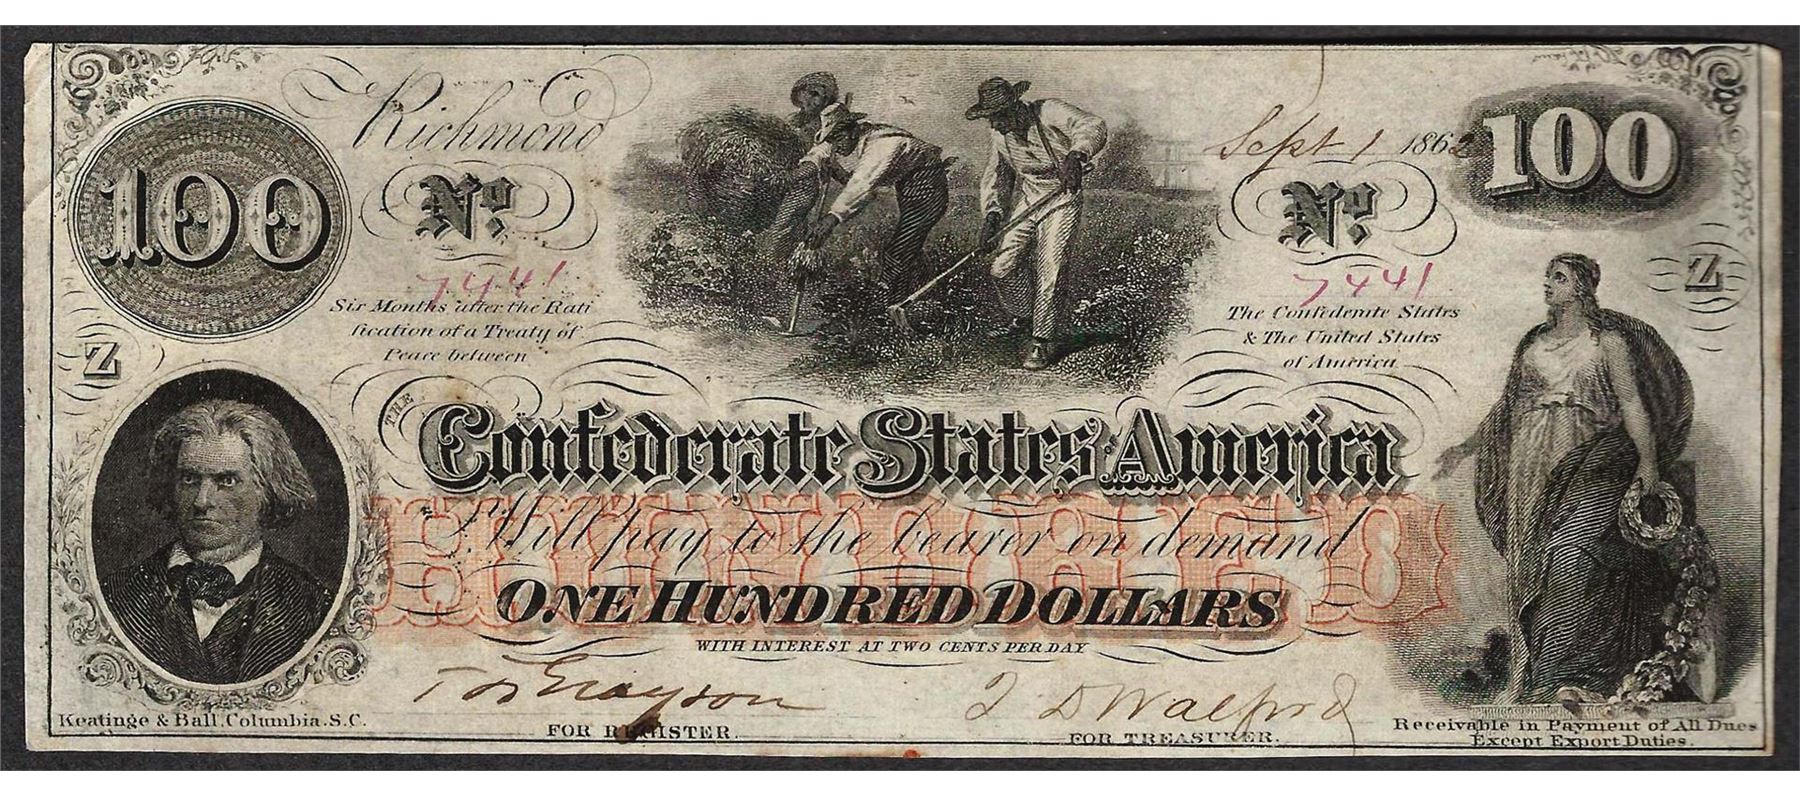 Richmond
Sept 1 1862
100
100
No.
No.
7441
7441
Z
Z
Six Months after the Rati
fication of a Treaty of
Peace between
The Confederate States
& The United States
of America
THE
Confederate States America
HUNDRED
Will pay to the bearer on demand
ONE HUNDRED DOLLARS
WITH INTEREST AT TWO CENTS PER DAY
Grayson
J D Walford
Keatinge & Ball, Columbia. S.C.
FOR REGISTER.
FOR TREASURER.
Receivable in Payment of All Dues
Except Export Duties.